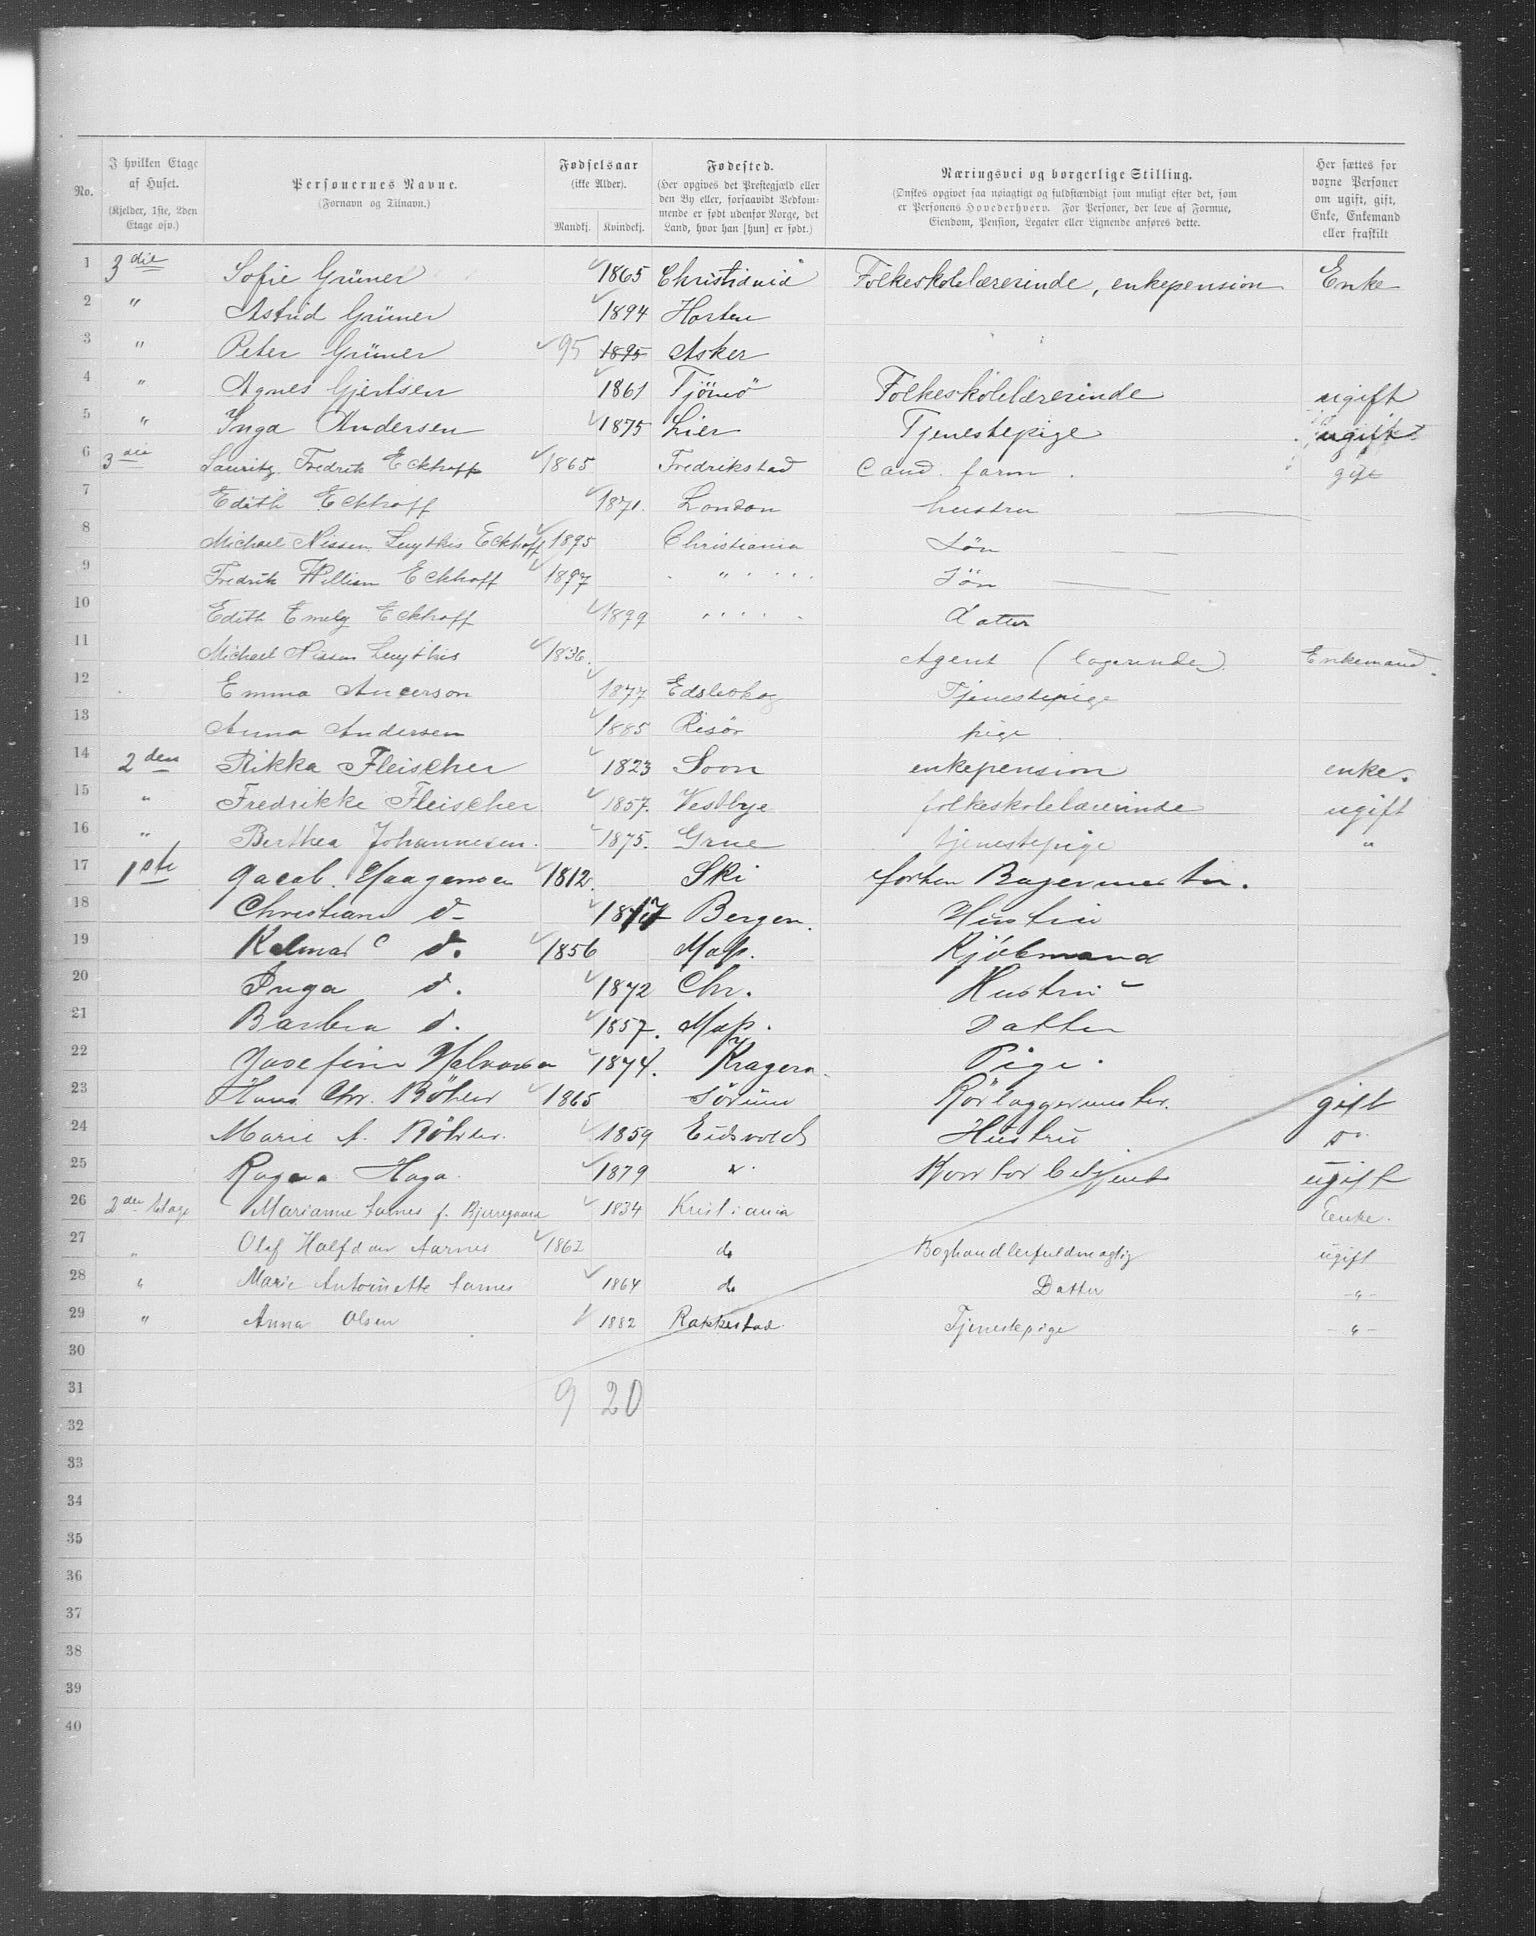 No. | I hvilken Etage af Huset. (Kjelder, 1ste, 2den Etage osv.) | Personernes Navne. (Fornavn og Tilnavn.) | Fødselsaar (ikke Alder). Mandkj. Kvindekj. | Fødested. (Her opgives det Prestegjæld eller den By eller, forsaavidt Vedkommende er født udenfor Norge, det Land, hvor han [hun] er født.) | Næringsvei og borgerlige Stilling. (Ønskes opgivet saa nøiagtigt og fuldstændigt som muligt efter det, som er Personens Hovederhverv. For Personer, der leve af Formue, Eiendom, Pension, Legater eller Lignende anføres dette. | Her sættes for voxne Personer om ugift, gift, Enke, Enkemand eller fraskilt
1 3die Sofie Grüner 1865 Christiania Folkeskolelærerinde, enkepension Enke
2 " Astrid Grüner 1894 Horten
3 " Peter Grüner 95 1895 Asker
4 " Agnes Gjertsen 1861 Tjömö Folkeskolelærerinde ugift
5 " Inga Andersen 1875 Lier Tjenestepige ugift
6 3die Lauritz Fredrik Eckhoff 1865 Fredrikstad Cand. farm. gift
7 Edith Eckhoff 1871. London hustru
8 Michael Nissen Luythis Eckhoff 1895 Christiania Sön
9 Fredrik William Eckhoff 1897 " Sön
10 Edith Emely Eckhoff 1899 " Datter
11 Michael Nissen Luythis 1836. Agent (logerende) Enkemand.
12 Emma Anderson 1877 Edsleskog Tjenestepige
13 Anna Andersen 1885 Risör pige
14 2den Rikka Fleischer 1823 Soon enkepension enke.
15 " Fredrikke Fleischer 1857. Vestbye folkeskolelærerinde ugift
16 " Berthea Johannesen. 1875. Grue tjenestepige "
17 1ste Jacob. Haagensen 1812. Ski forhen Bagermester.
18 Christiane d- 1817 Bergen. Hustru
19 Kelmar C d. 1856 Moss. Kjöbmand
20 Inga d. 1872 Chr. Hustru
21 Barbra d. 1857. Moss. Datter
22 Josefine Halvorsen 1874. Kragerø. Pige.
23 Hans Chr. Böhler 1865 Sörum Rörlæggermester. gift
24 Marie A. Böhler. 1859 Eidsvold Hustru do.
25 Ragna Haga. 1879 " Kontorbetjent ugift
26 2den Etage Marianne Aarnes f. Bjerregaard 1834 Kristiania Eenke.
27 " Olaf Halfdan Aarnes 1862 do Boghandlerfuldmægtig ugift
28 " Marie Antoinette Aarnes 1864 do Datter -"-
29 " Anna Olsen 1882 Rakkestad Tjenestepige -"-
30
31 9 20
32
33
34
35
36
37
38
39
40